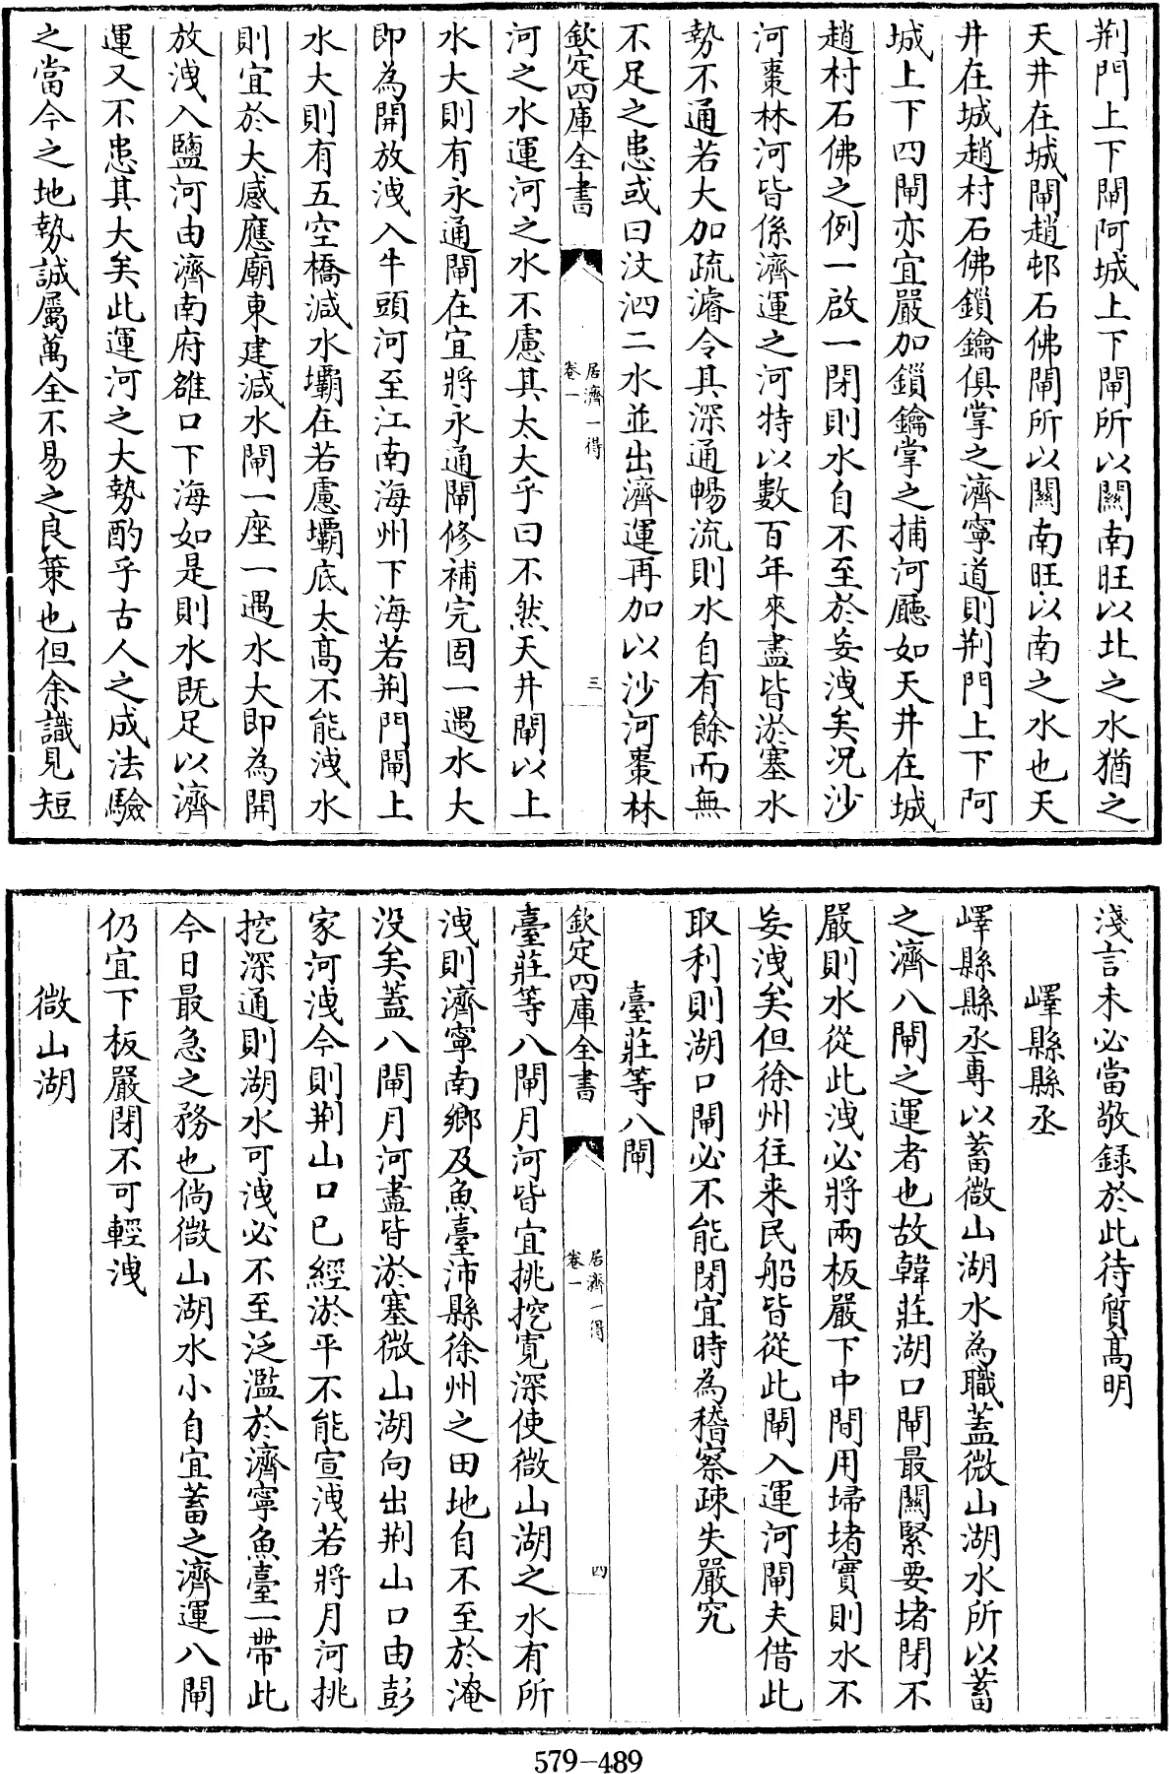 荆門上下閘阿城上下閘所以關南旺以北之水猶之
天井在城閘趙邨石佛閘所以關南旺以南之水也天
井在城趙村石佛鎖鑰俱掌之濟寧道則荆門上下阿
城上下四閘亦宜嚴加鎖鑰掌之捕河廳如天井在城
趙村石佛之例一啟一閉則水自不至於妄洩矣况沙
河棗林河皆係濟運之河特以數百年來盡皆淤塞水
勢不通若大加疏濬令其深通暢流則水自有餘而無
不足之患或曰汶泗二水並出濟運再加以沙河棗林
欽定四庫全書
居濟一得
卷一
三
河之水運河之水不慮其太大乎曰不然天井閘以上
水大則有永通閘在宜將永通閘修補完固一遇水大
即為開放洩入牛頭河至江南海州下海若荆門閘上
水大則有五空橋減水壩在若慮壩底太高不能洩水
則宜於大感應廟東建減水閘一座一遇水大即為開
放洩入鹽河由濟南府雒口下海如是則水既足以濟
運又不患其大矣此運河之大勢酌乎古人之成法驗
之當今之地勢誠屬萬全不易之良策也但余識見短
淺言未必當敬録於此待質高明
嶧縣縣丞
嶧縣縣丞專以蓄微山湖水為職蓋微山湖水所以蓄
之濟八閘之運者也故韓莊湖口閘最關緊要堵閉不
嚴則水從此洩必將兩板嚴下中間用埽堵實則水不
妄洩矣但徐州往来民船皆從此閘入運河閘夫借此
取利則湖口閘必不能閉宜時為稽察疎失嚴究
臺莊等八閘
欽定四庫全書
居濟一得
卷一
四
臺莊等八閘月河皆宜挑挖寬深使微山湖之水有所
洩則濟寧南鄉及魚臺沛縣徐州之田地自不至於淹
没矣蓋八閘月河盡皆淤塞微山湖向出荆山口由彭
家河洩今則荆山口已經淤平不能宣洩若將月河挑
挖深通則湖水可洩必不至泛濫於濟寧魚臺一帶此
今日最急之務也倘微山湖水小自宜蓄之濟運八閘
仍宜下板嚴閉不可輕洩
微山湖
579-489